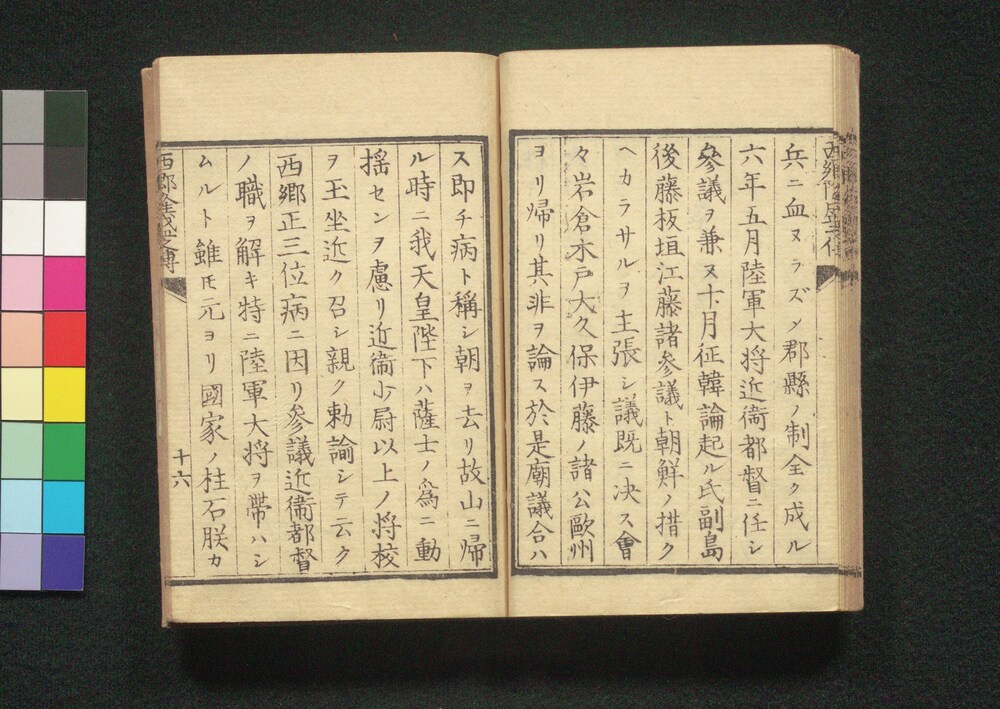 兵ニ血ヌラズメ郡縣ノ制全ク成ル
六年五月陸軍大将近衞都督ニ任シ
參議ヲ兼ヌ十月征韓論起ル氏副島
後藤板垣江藤諸參議ト朝鮮ノ措ク
ヘカラサルヲ主張シ議既ニ决ス會
々岩倉木戸大久保伊藤ノ諸公歐州
ヨリ帰リ其非ヲ論ス於是廟議合ハ
ス即チ病ト稱シ朝ヲ去リ故山ニ帰
ル時ニ我天皇陛下ハ薩士ノ爲ニ動
揺センヲ慮リ近衞少尉以上ノ将校
ヲ玉坐近ク召シ親ク勅諭シテ云ク
西郷正三位病ニ因リ參議近衞都督
ノ職ヲ解キ特ニ陸軍大将ヲ帶ハシ
ムルト雖𪜈元ヨリ國家ノ柱石朕カ
十六